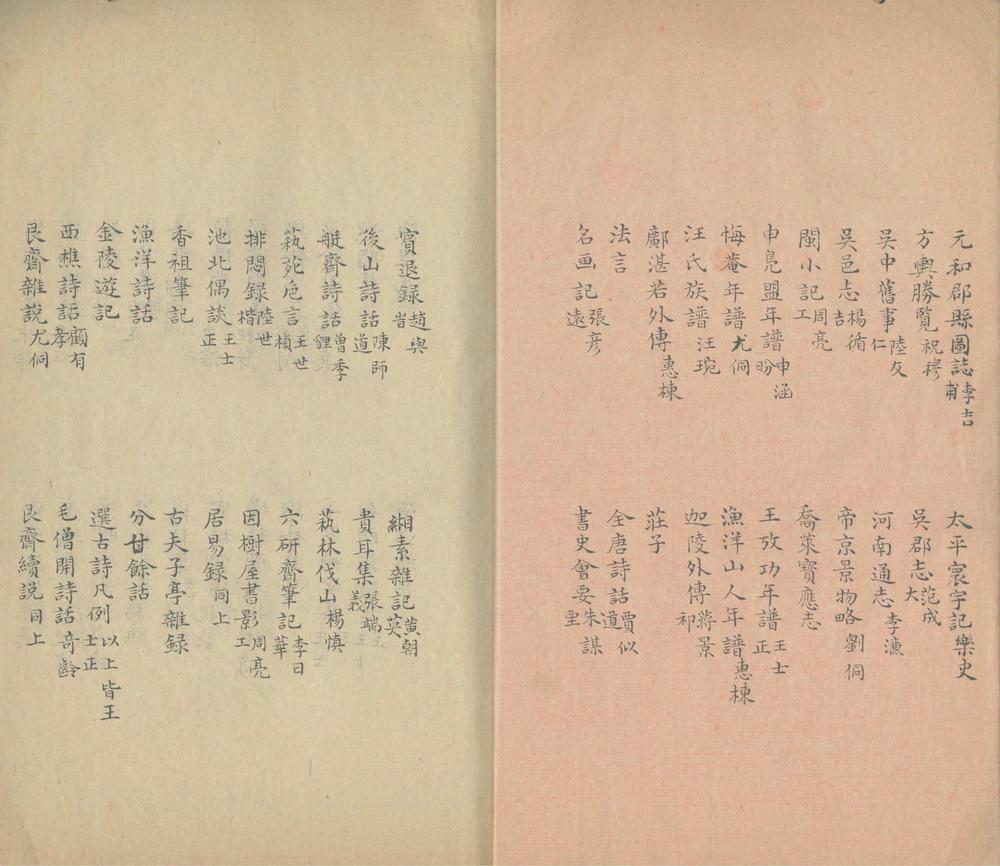 元和郡縣圖誌李吉甫
太平寰宇記樂史
方輿勝覽祝穆
吳郡志范成大
吳中舊事陸友仁
河南通志李濂
吳邑志楊循吉
帝京景物略劉侗
閩小記周亮工
喬萊寳應志
申鳧盟年譜申涵盼
王攷功年譜王士正
悔菴年譜尤侗
漁洋山人年譜惠棟
汪氏族譜汪琬
迦陵外傳蔣景祁
鄺湛若外傳惠棟
莊子
法言
全唐詩話賈似道
名画記張彦遠
書史會要朱謀垔
賓退録趙與旹
緗素雜記黄朝英
後山詩話陳師道
貴耳集張端義
艇齋詩話曾季貍
萟林伐山楊慎
萟苑卮言王世楨
六研齋筆記李日華
排悶録陸世楷
因樹屋書影周亮工
池北偶談王士正
居易録同上
香祖筆記
古夫于亭雜録
漁洋詩話
分甘餘話
金陵遊記
選古詩凡例以上皆王士正
西樵詩話顧有孝
毛僧開詩話奇齡
艮齋雜説尤侗
艮齋續説同上